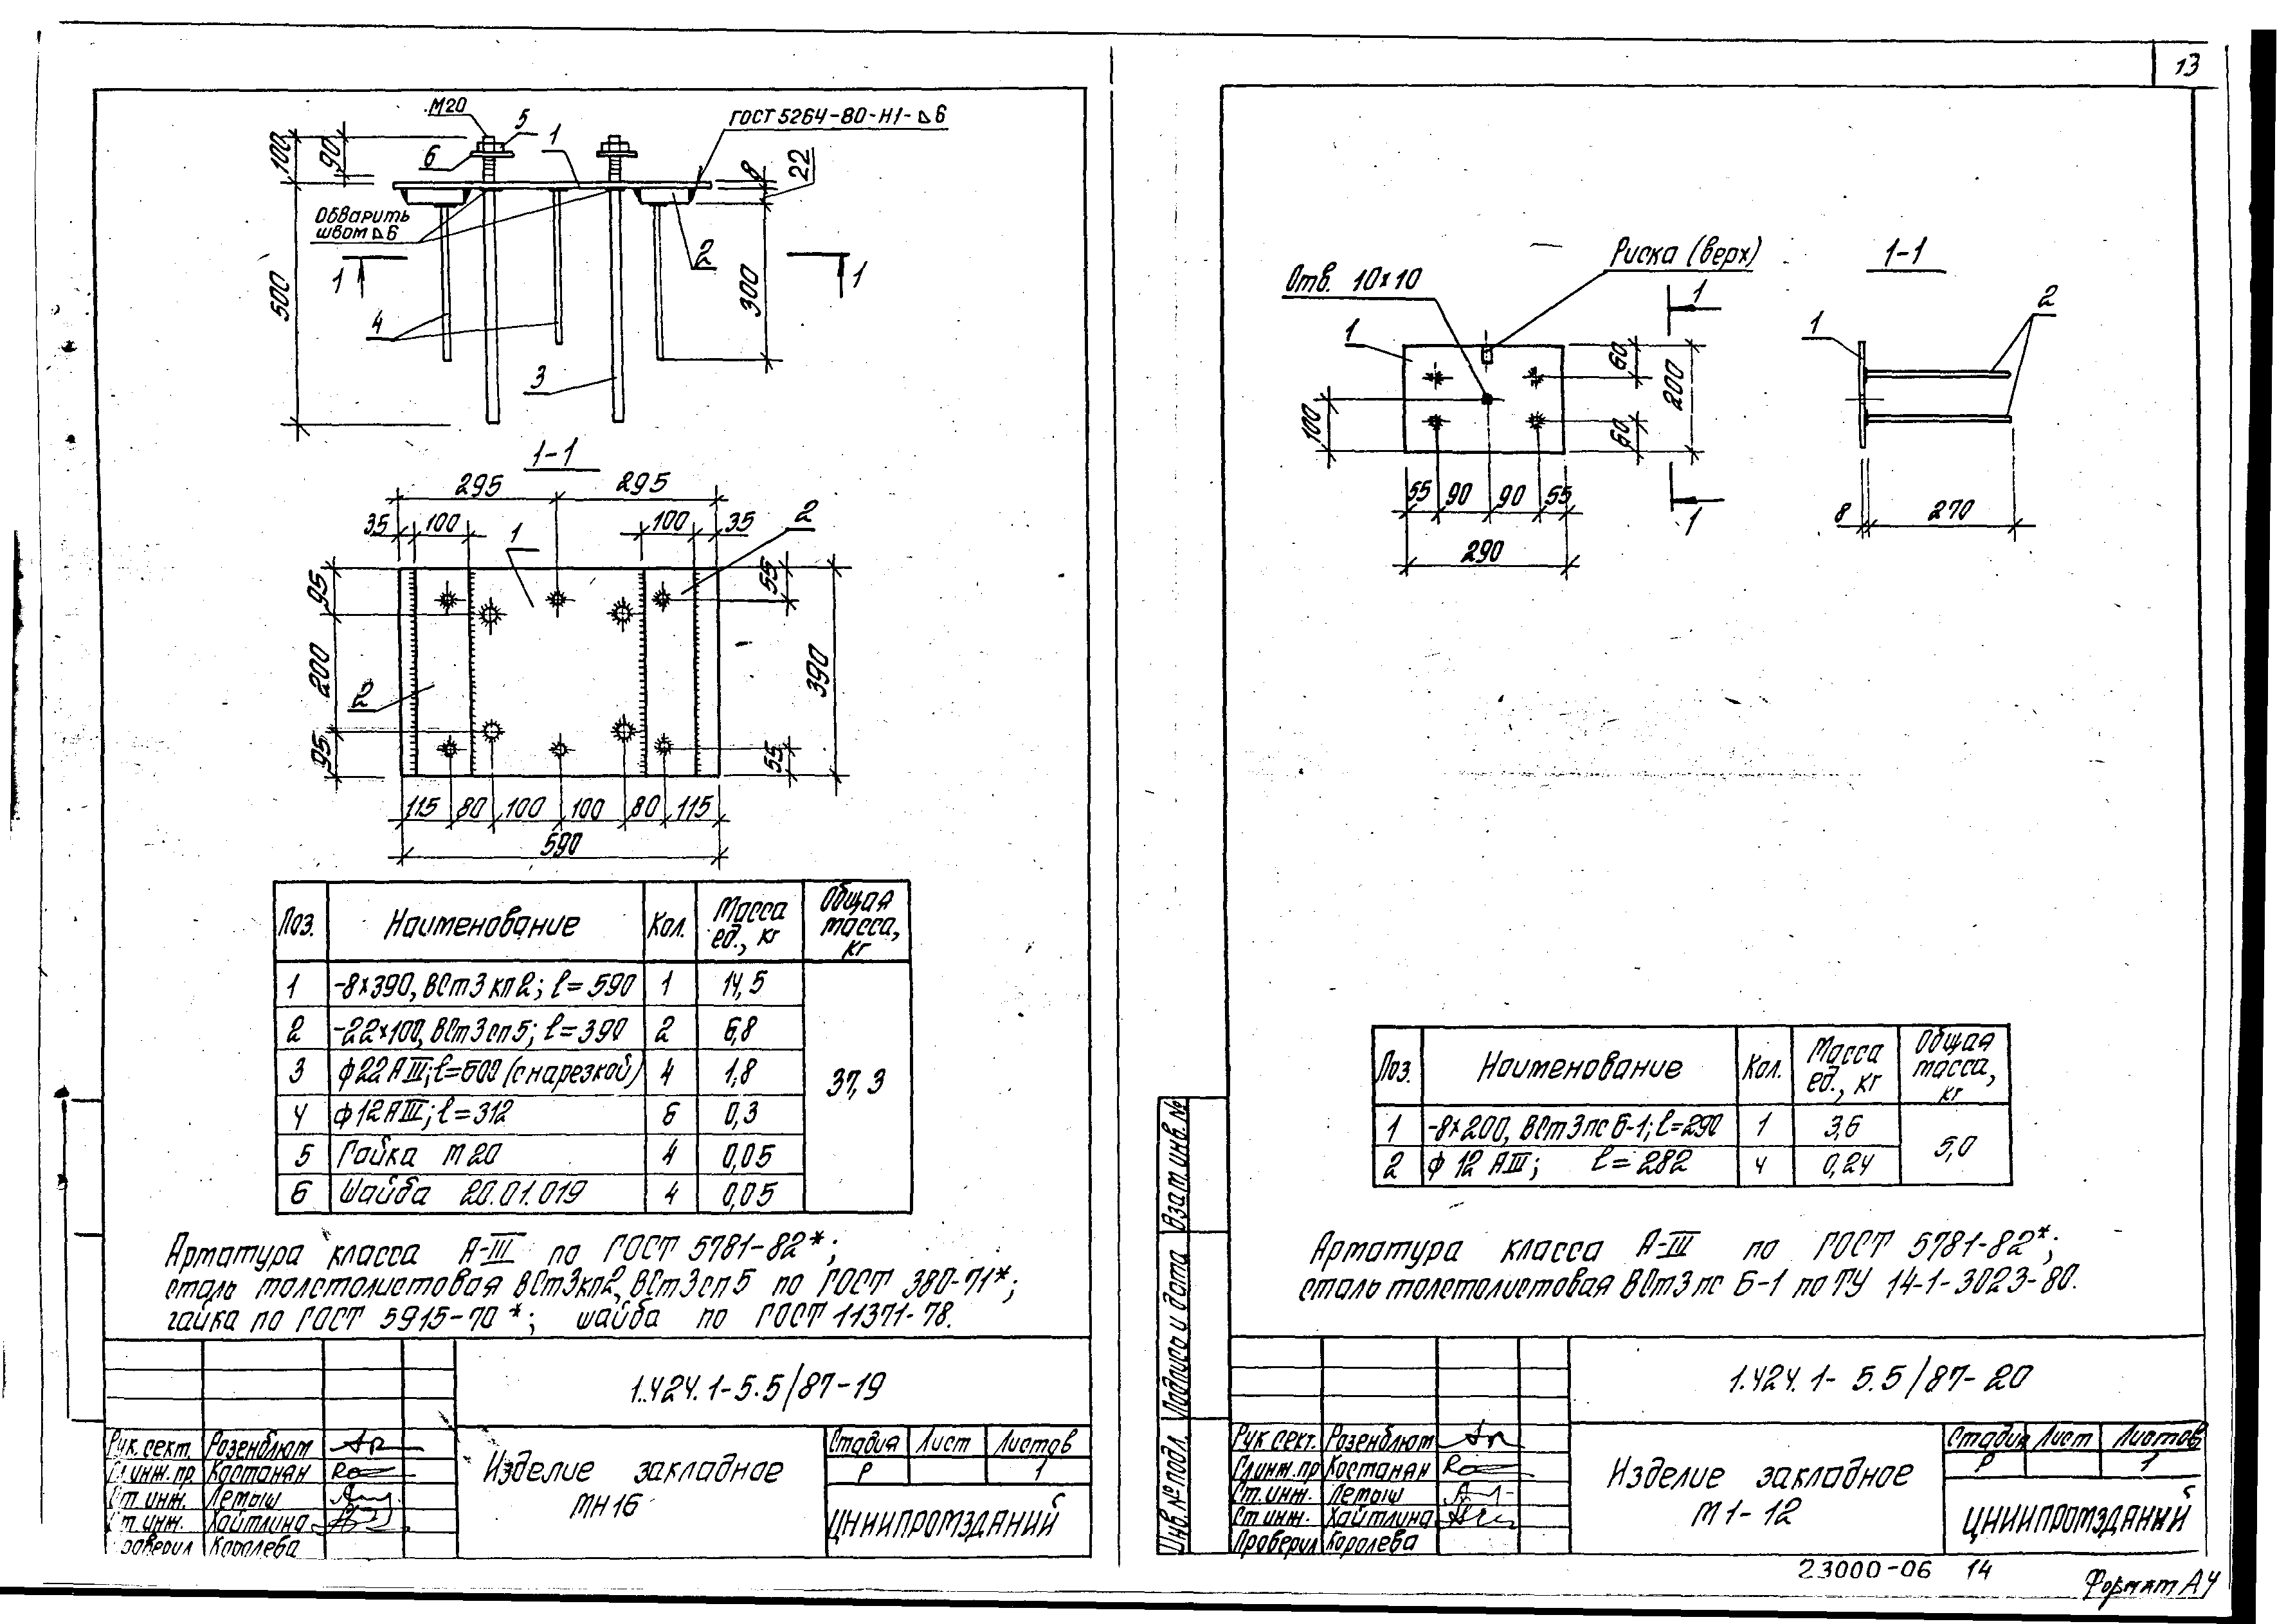 13
М20
5
1
ГОСТ 5264-80-Н1-⊿6
6
100
90
8
22
Обварить
швом ⊿6
500
1
1
2
300
4
3
1-1
295 295
35 100 100 35
1
2
95
55
200
390
2
95
55
115 80 100 100 80 115
590
Поз. Наименование Кол. Масса ед., кг Общая масса, кг
1 -8×390, ВСт3кп2; ℓ=590 1 14,5
2 -22×100, ВСт3сп5; ℓ=390 2 6,8
3 ф22АIII; ℓ=600 (с нарезкой) 4 1,8 37,3
4 ф12АIII; ℓ=312 6 0,3
5 Гайка М20 4 0,05
6 Шайба 20.01.019 4 0,05
Арматура класса А-III по ГОСТ 5781-82*;
сталь толстолистовая ВСт3кп2, ВСт3сп5 по ГОСТ 380-71*;
гайка по ГОСТ 5915-70*; шайба по ГОСТ 11371-78.
1.424.1-5.5/87-19
Рук. сект. Розенблюм
Гл. инж. пр Костанян
Ст. инж. Летыш
Ст. инж. Хайтлина
Проверил Королева
Изделие закладное
МН16
Стадия Лист Листов
Р 1
ЦНИИПРОМЗДАНИЙ
Отв. 10×10
Риска (верх)
1-1
1
1
1
2
60
200
100
60
55 90 90 55
1
290
8 270
Поз. Наименование Кол. Масса ед., кг Общая масса, кг
1 -8×200, ВСт3пс6-1; ℓ=290 1 3,6 5,0
2 ф12 АIII; ℓ=282 4 0,24
Арматура класса А-III по ГОСТ 5781-82*;
сталь толстолистовая ВСт3пс 6-1 по ТУ 14-1-3023-80.
Взам. инв. №
Подпись и дата
Инв. № подл.
1.424.1-5.5/87-20
Рук. сект. Розенблюм
Гл. инж. пр Костанян
Ст. инж. Летыш
Ст. инж. Хайтлина
Проверил Королева
Изделие закладное
М1-12
Стадия Лист Листов
Р 1
ЦНИИПРОМЗДАНИЙ
23000-06 14
Формат А4